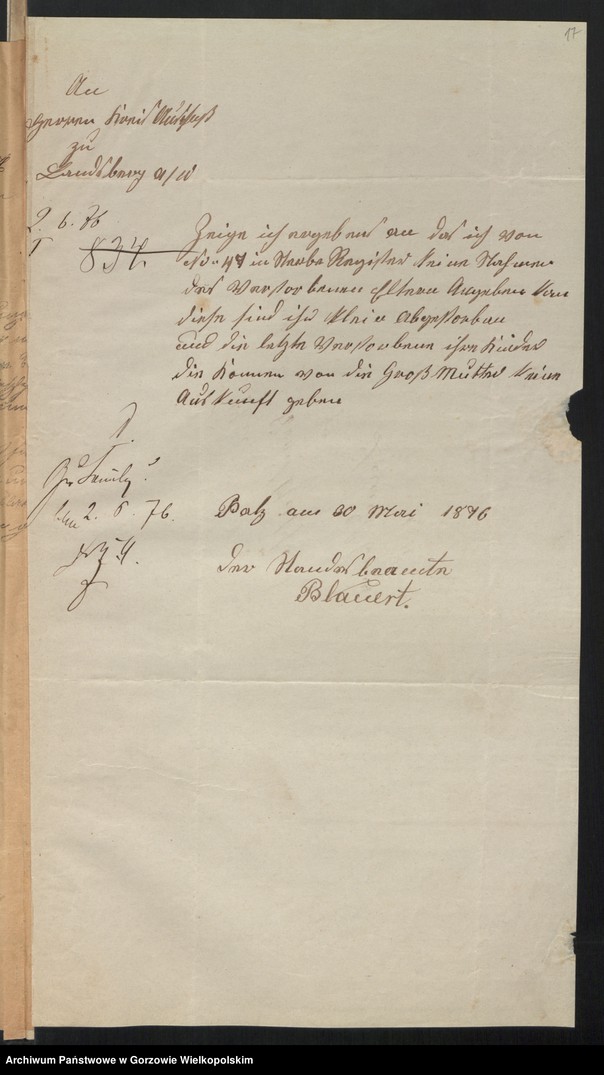 17
An
Herren Kreis Ausschuß
zu
Landsberg a/W
2. 6. 76
832
Zeige ich ergebens an das ich von
No 47 in Sterbe Register keine Nahmen
des Verstorbenen Eltern Angeben kan
diese sind ihr klein abgestorben
und die letzte Verstorbene ihre Kinder
die können von die Groß Mutter keine
Auskunft geben
2. 6. 76.
Balz am 30 Mai 1876
der Standesbeamte
Blauert.
Archiwum Państwowe w Gorzowie Wielkopolskim